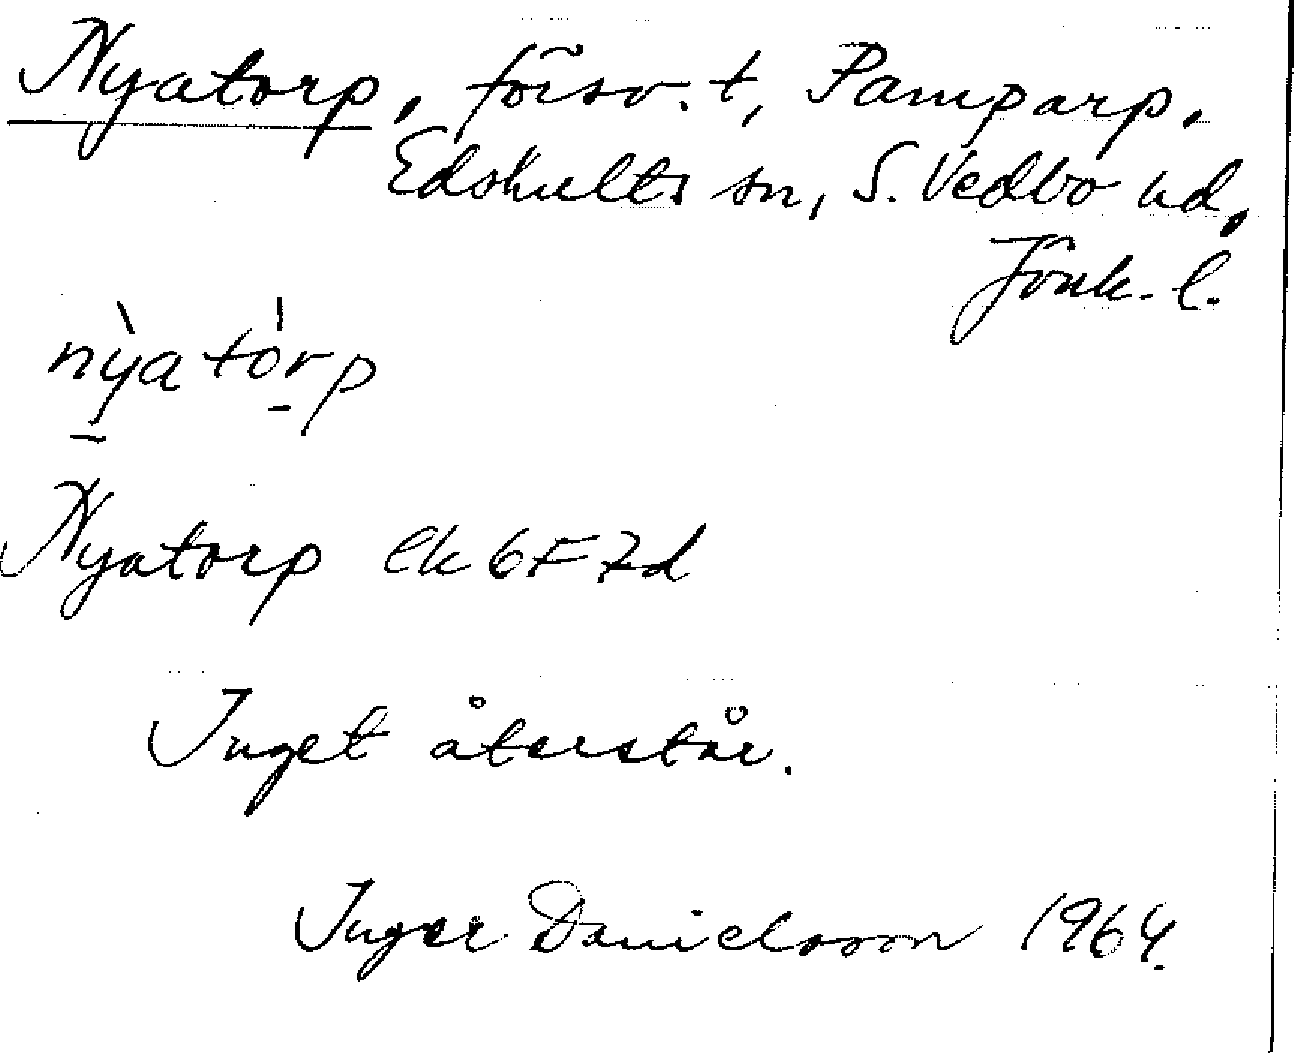 Nyatorp, försv. t, Pamparp,
Edshults sn, S. Vedbo hd,
Jönk. l.
nỳatórp
Nyatorp ek 6F7d
Inget återstår.
Inger Danielsson 1964.